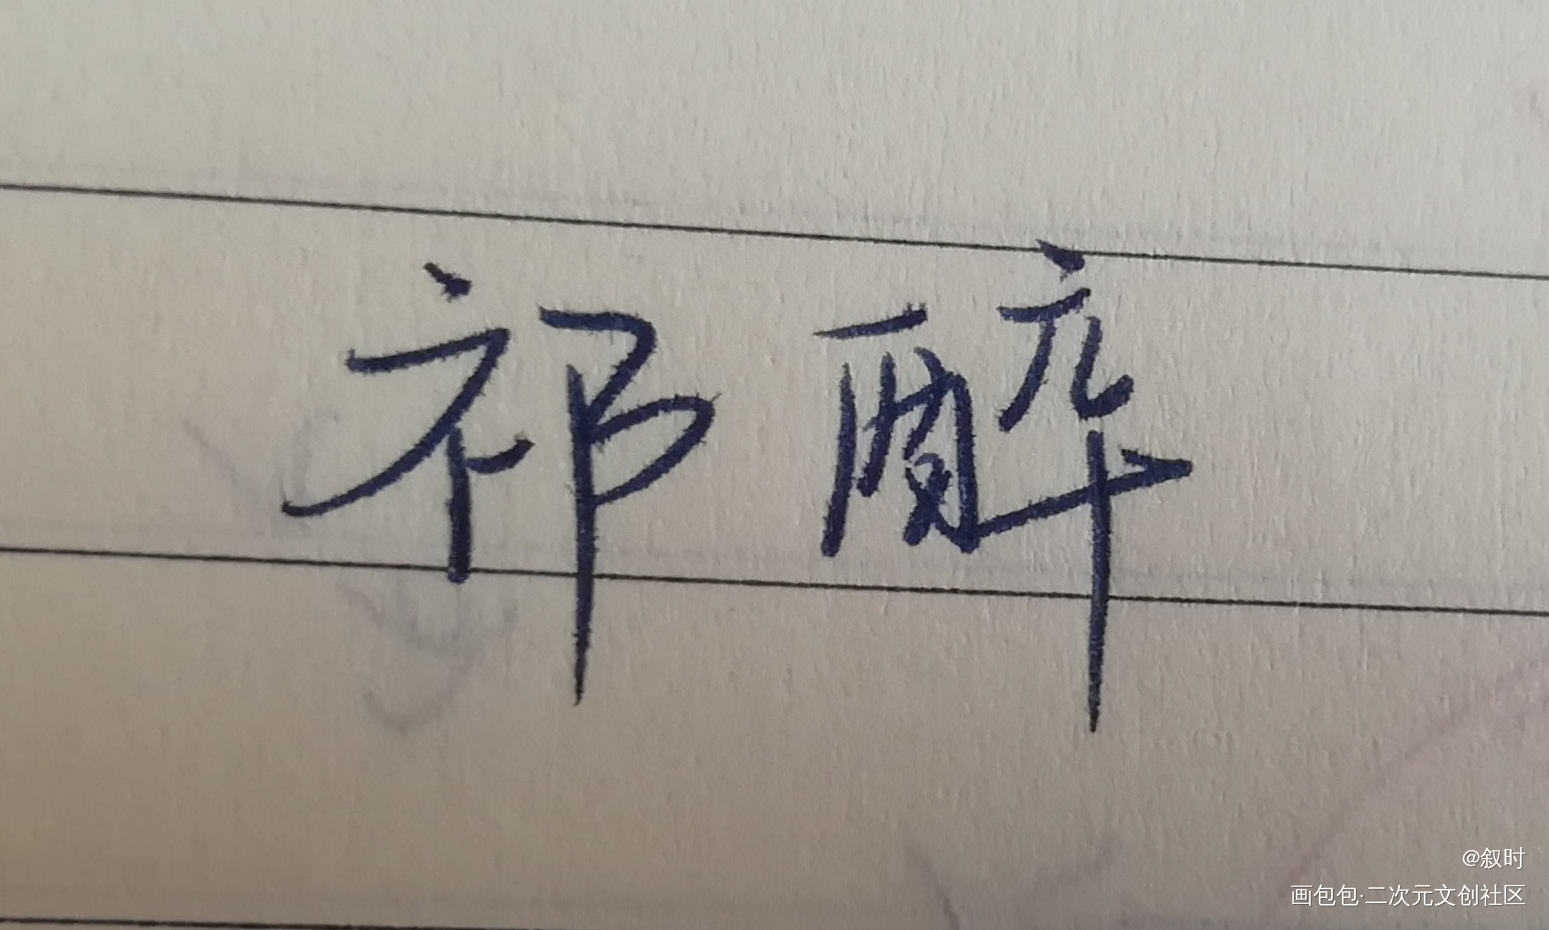 祁醉
@叙时
画包包·二次元文创社区